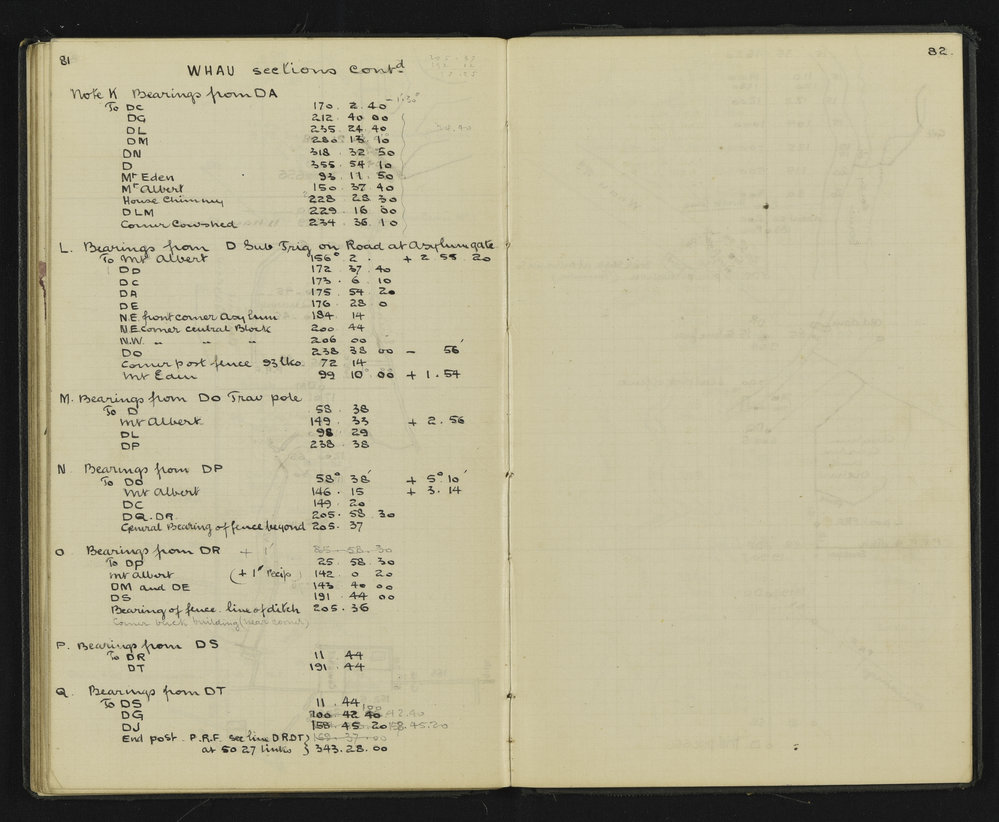 81
WHAU sections contd
Note K Bearings from DA
To DC 170 . 2 . 40 - 1'.30"
DG 212 . 40 00
DL 235 . 24 . 40
DM 280 . 13 . 10
DN 318 . 32 . 50
D 355 . 54 . 10
Mt Eden 93 . 11 . 50
Mt Albert 150 . 37 . 40
House Chimney 228 . 28 . 30
DLM 229 . 16 . 00
Corner Cowshed 234 . 36 . 10
L. Bearings from D Sub Trig on Road at Asylum gate
To Mt Albert 156° 2 . + 2 . 55 . 20
DD 172 . 37 . 40
DC 173 . 6 . 10
DA 175 . 54 . 20
DE 176 . 28 . 0
N.E. front corner Asylum 184 . 14
N.E. corner central Block 200 . 44
N.W. " " " 206 00
DO 238 38 00 - 56'
Corner post fence 93 lks. 72 14
Mt Eden 99 10' 00 + 1 . 54
M. Bearings from DO Trav pole
To D 58 . 38
Mt Albert 149 . 33 + 2 . 56
DL 98 . 29
DP 238 . 38
N Bearings from DP
To DO 58° 38' + 5° 10'
Mt Albert 146 . 15 + 3 . 14
DC 149 . 20
DQ . DR 205 . 58 . 30
General Bearing of fence beyond 205 . 37
O Bearings from DR + 1' 25 . 58 . 30
To DP 25 . 58 . 30
Mt Albert (+ 1' recip) 142 . 0 20
DM and DE 143 . 40 00
DS 191 . 44 00
Bearing of fence . line of ditch 205 . 36
Corner back building (near corner)
P. Bearings from DS
To DR 11 . 44
DT 191 . 44
Q. Bearings from DT
To DS 11 . 44
DG 100 42 40 100 42.40
DJ 158 . 45 . 20 158.45.20
End post . P.R.F. see line DR.DT) 163 . 37 . 00
at 50 27 links } 343 . 28 . 00
82.